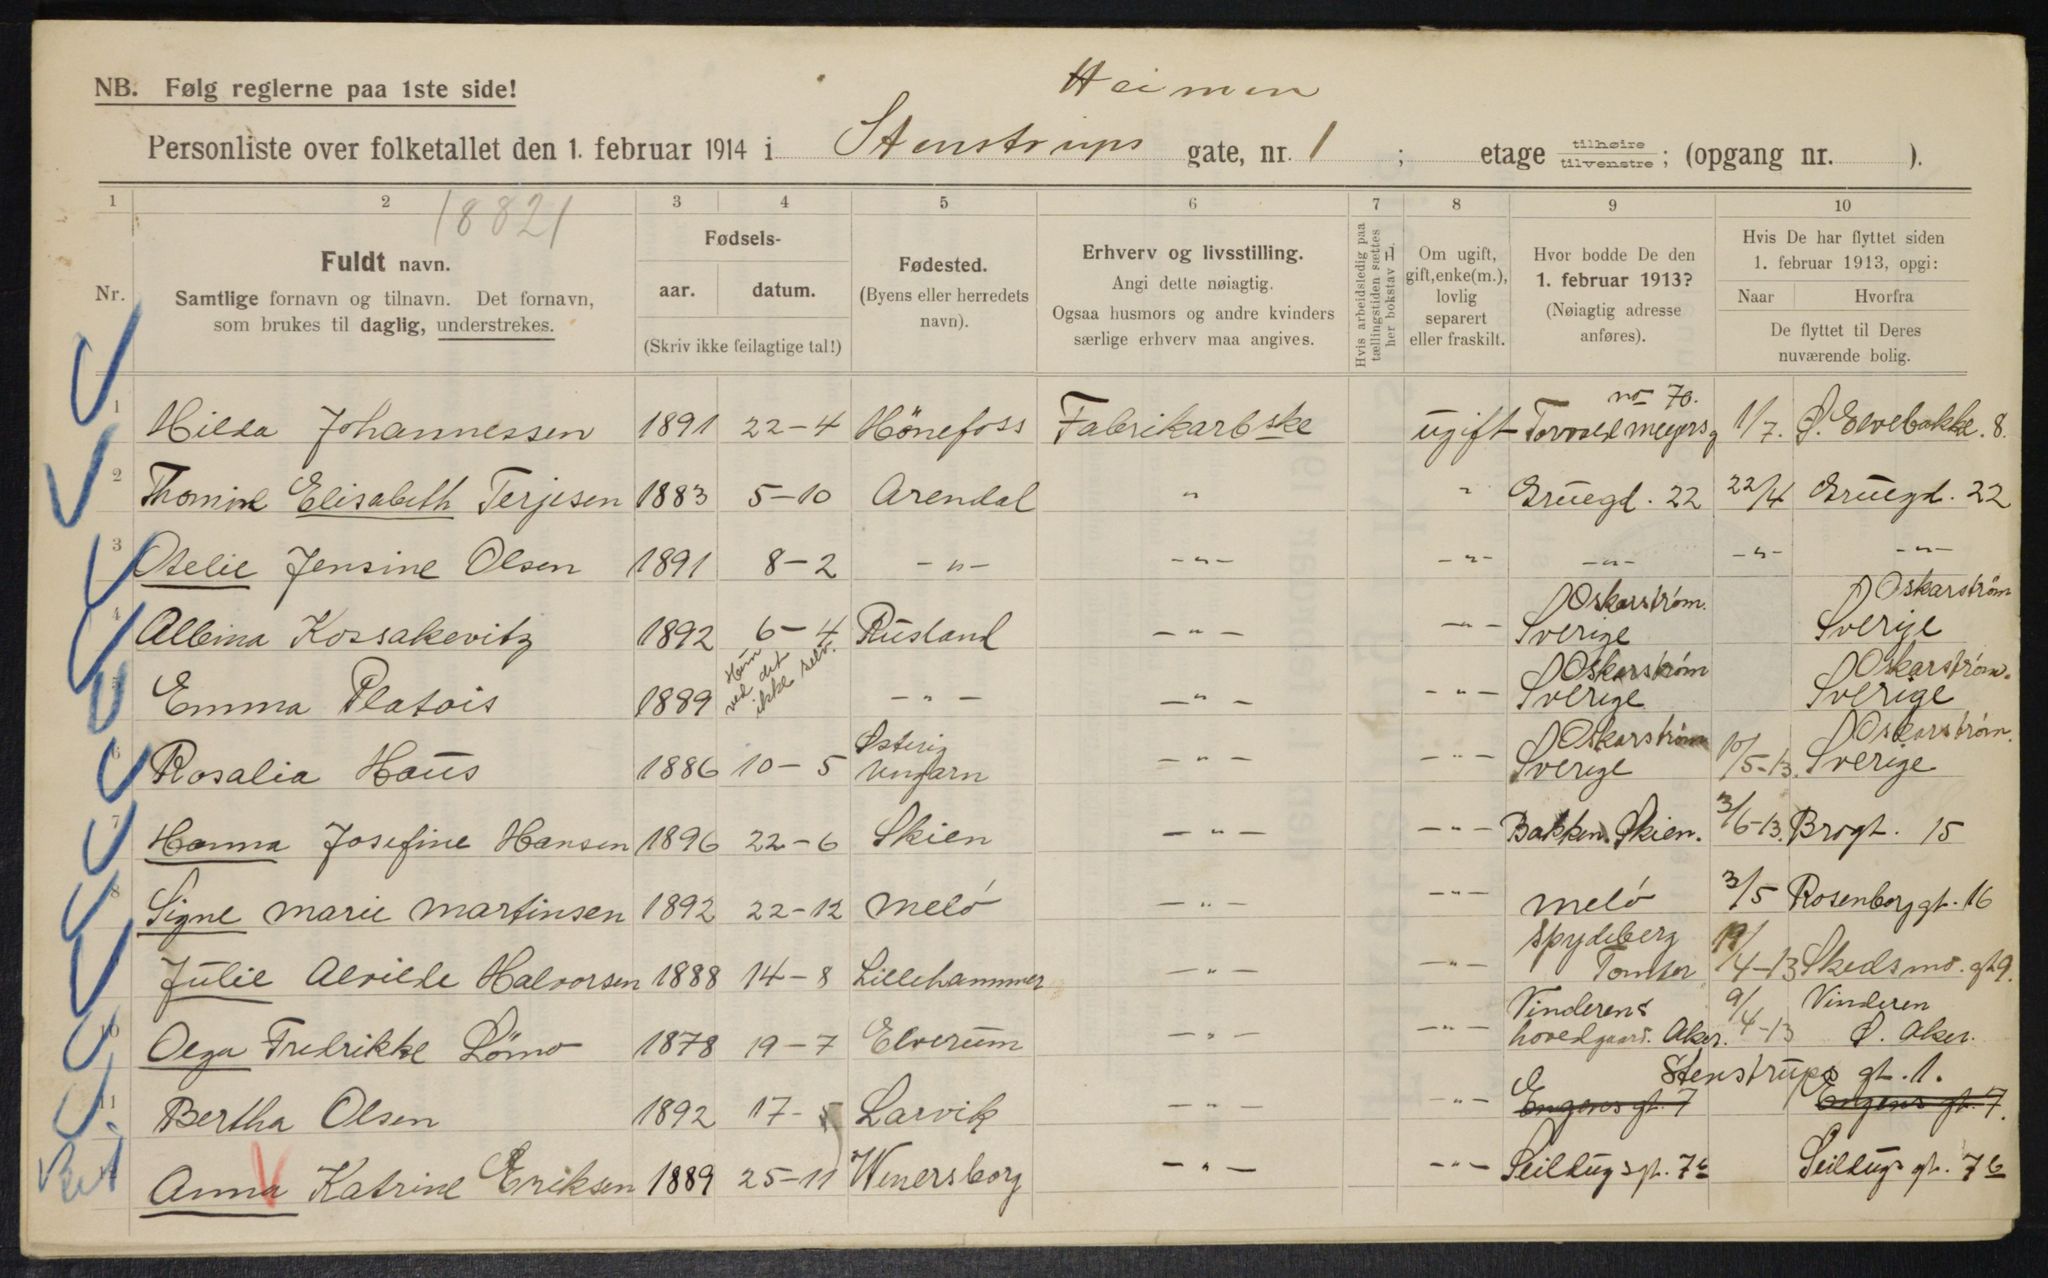 NB. Følg reglerne paa 1ste side!
Heimen
Personliste over folketallet den 1. februar 1914 i Stenstrups gate, nr. 1 ; etage tilhøire/tilvenstre; (opgang nr. ).
1 2 3 4 5 6 7 8 9 10
18821
Nr.
Fuldt navn.
Samtlige fornavn og tilnavn. Det fornavn,
som brukes til daglig, understrekes.
Fødsels-
aar. datum.
(Skriv ikke feilagtige tal!)
Fødested.
(Byens eller herredets
navn).
Erhverv og livsstilling.
Angi dette nøiagtig.
Ogsaa husmors og andre kvinders
særlige erhverv maa angives.
Hvis arbeidsledig paa
tællingstiden sættes
her bokstav L
Om ugift,
gift, enke(m.),
lovlig
separert
eller fraskilt.
Hvor bodde De den
1. februar 1913?
(Nøiagtig adresse
anføres).
Hvis De har flyttet siden
1. februar 1913, opgi:
Naar Hvorfra
De flyttet til Deres
nuværende bolig.
1 Hilda Johannessen 1891 22-4 Hönefoss Fabrikarbske ugift Torvald meyersg no 70. 1/7. Ø. Elvebakke. 8.
2 Thomine Elisabeth Terjesen 1883 5-10 Arendal " " Gruegd. 22 22/4 Gruegd. 22
3 Otelie Jensine Olsen 1891 8-2 -"- -"- -"- -"- -"- -"-
4 Albina Kossakevitz 1892 6-4 Rusland -"- -"- Oskarström. Sverige Oskarström Sverige
5 Emma Platois 1889 Hun ved det ikke selv. -"- -"- -"- Oskarström Sverige Oskarström. Sverige
6 Rosalia Haus 1886 10-5 Østerig Ungarn -"- -"- Oskarström Sverige 10/5-13. Oskarström. Sverige
7 Hanna Josefine Hansen 1896 22-6 Skien -"- -"- Bakken. Skien. 3/6-13. Brogt. 15
8 Signe marie martinsen 1892 22-12 melö -"- -"- melö 3/5 Rosenborggt. 16
Julie Alvilde Halvorsen 1888 14-8 Lillehammer -"- -"- Spydeberg Tomter 19/4-13 Skedsmo. gt 9.
10 Olga Fredrikke Lömo 1878 19-7 Elverum -"- -"- Vinderens hovedgaard. Aker. 9/4-13 Vinderen Ø. Aker.
Stenstrups gt. 1.
11 Bertha Olsen 1892 17-5 Larvik -"- -"- Engens gt. 7 Engens gt. 7.
Anna Katrine Eriksen 1889 25-11 Wenersborg -"- -"- Seildugsgt. 7b Seildugsgt. 7b